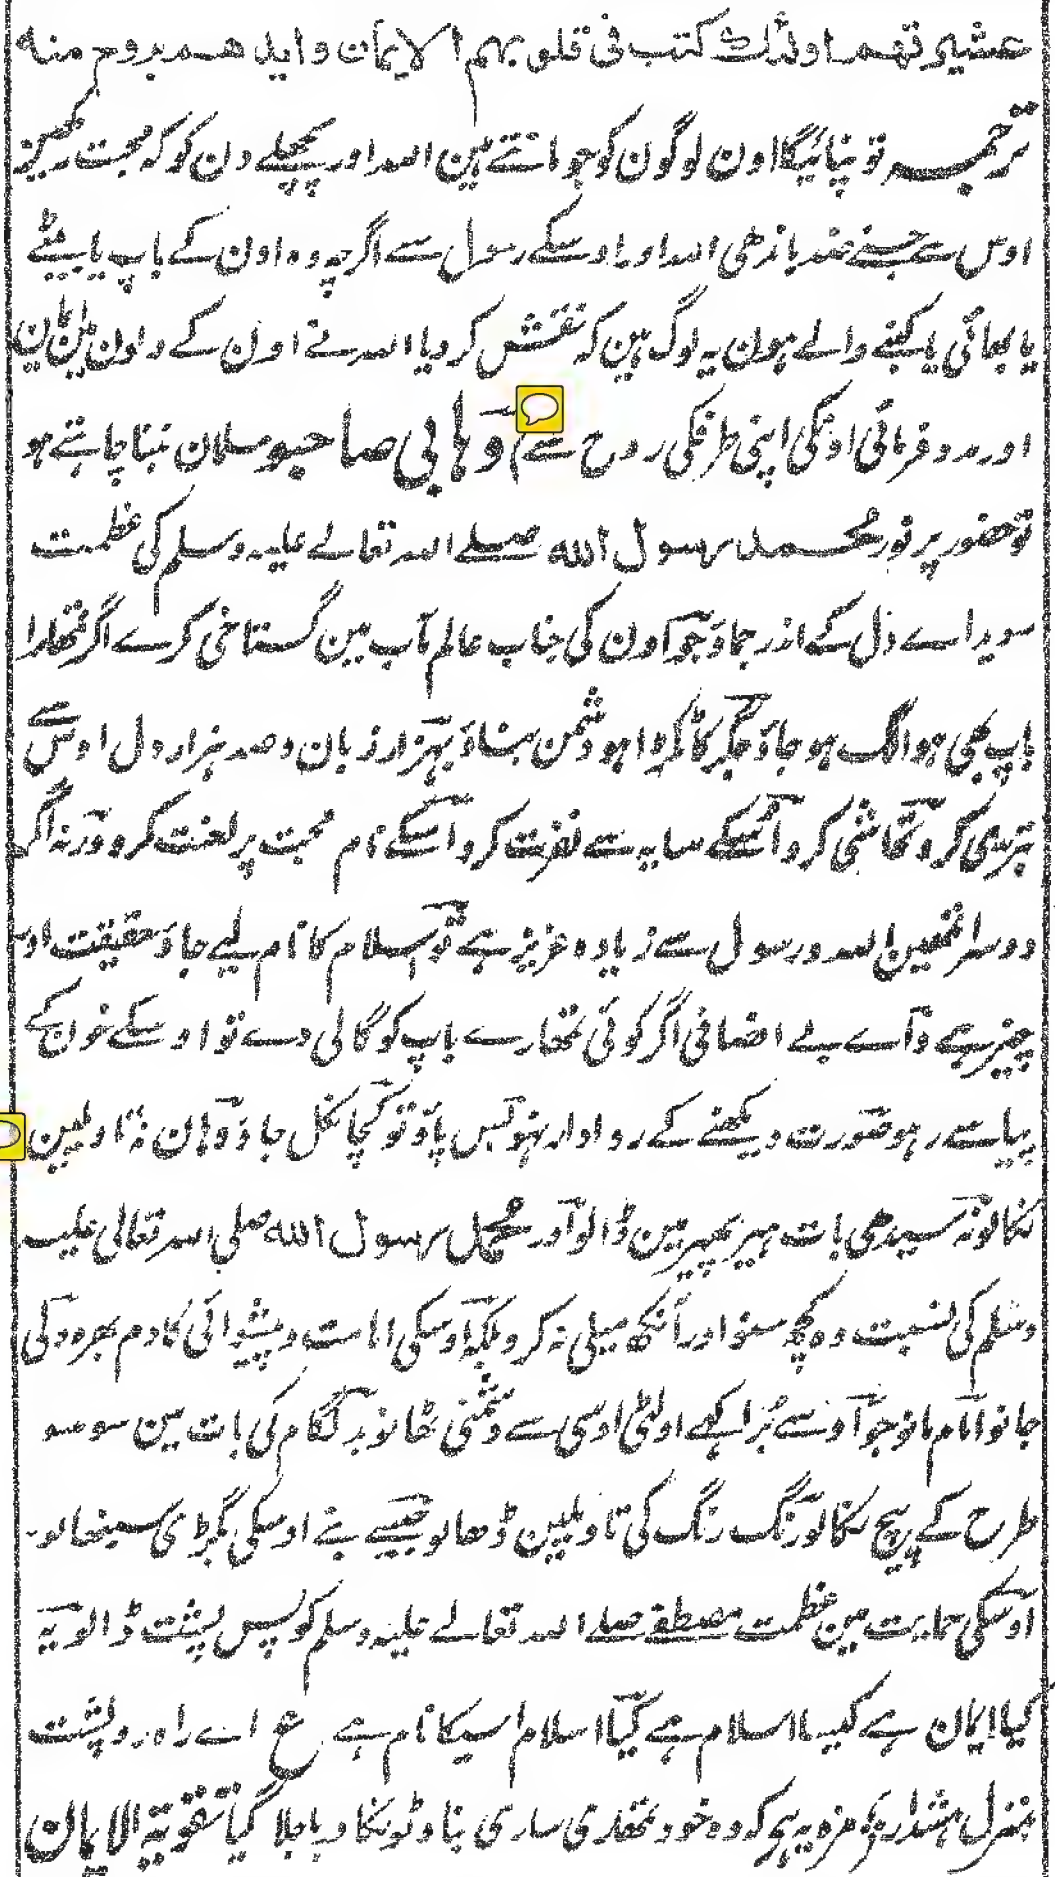 عشیرتھم اولئک کتب فی قلوبہم الایمان وایدھم بروح منہ
ترجمہ تو نپائیگا اون لوگون کو جو مانتے ہین اللہ اور پچھلے دن کو کہ محبت رکھین
اوس سے جسنے ضد باندھی اللہ اور اوسکے رسول سے اگرچہ وہ اون کے باپ یا بیٹے
یا بھائی یا کنبے والے ہون یہ لوگ ہین کہ نقش کر دیا اللہ نے اون کے دلون مین ایمان
اور مدد فرمائی اونکی اپنی طرفکی روح سے وہابی صاحبو مسلمان بننا چاہتے ہو
تو حضور پرنور محمد رسول اللہ صلے اللہ تعالے علیہ وسلم کی عظمت
سویداے دل کے اندر جماؤ جو اون کی جناب عالم مآب مین گستاخی کرے اگر تمھارا
باپ بھی ہو الگ ہو جاؤ جگر کا ٹکڑا ہو دشمن بناؤ بہزار زبان و صد ہزار دل اوس سے
تبری کرو تحاشی کرو اسکے سایہ سے نفرت کرو اسکے نام محبت پر لعنت کرو ورنہ اگر
دوسرا تمھین اللہ ورسول سے زیادہ عزیز ہے تو اسلام کا نام لیے جاؤ حقیقت اور
چیز ہے واے بے انصافی اگر کوئی تمھارے باپ کو گالی دے تو اوسکے خون کے
پیاسے رہو صورت دیکھنے کے روادار نہو بس پاؤ تو کچا نگل جاؤ وہان نہ تاویلین
نکالو نہ سیدھی بات ہیر پھیر مین ڈالو اور محمد رسول اللہ صلی اللہ تعالی علیہ
وسلم کی نسبت وہ کچھ سنو اور آنکھ میلی نہ کرو بلکہ اوسکی امامت وپیشوائی کا دم بھرو ولی
جانو امام مانو جو اوسے برا کہے اولٹی اوسی سے دشمنی ٹھانو بد لگام کی بات مین سو سو
طرح کے پیچ نکالو رنگ رنگ کی تاویلین ڈھالو جیسے بنے اوسکی بگڑی سنبھالو
اوسکی حمایت مین عظمت مصطفے صلے اللہ تعالے علیہ وسلم کو پس پشت ڈالو یہ
کیا ایمان ہے کیسا اسلام ہے کیا اسلام اسیکا نام ہے ع اے راہ رو پشت
بمنزل ہشدار مزہ یہ ہے کہ وہ خود تمھاری ساری بناوٹونکا دربا جلا گیا تقویۃ الایمان